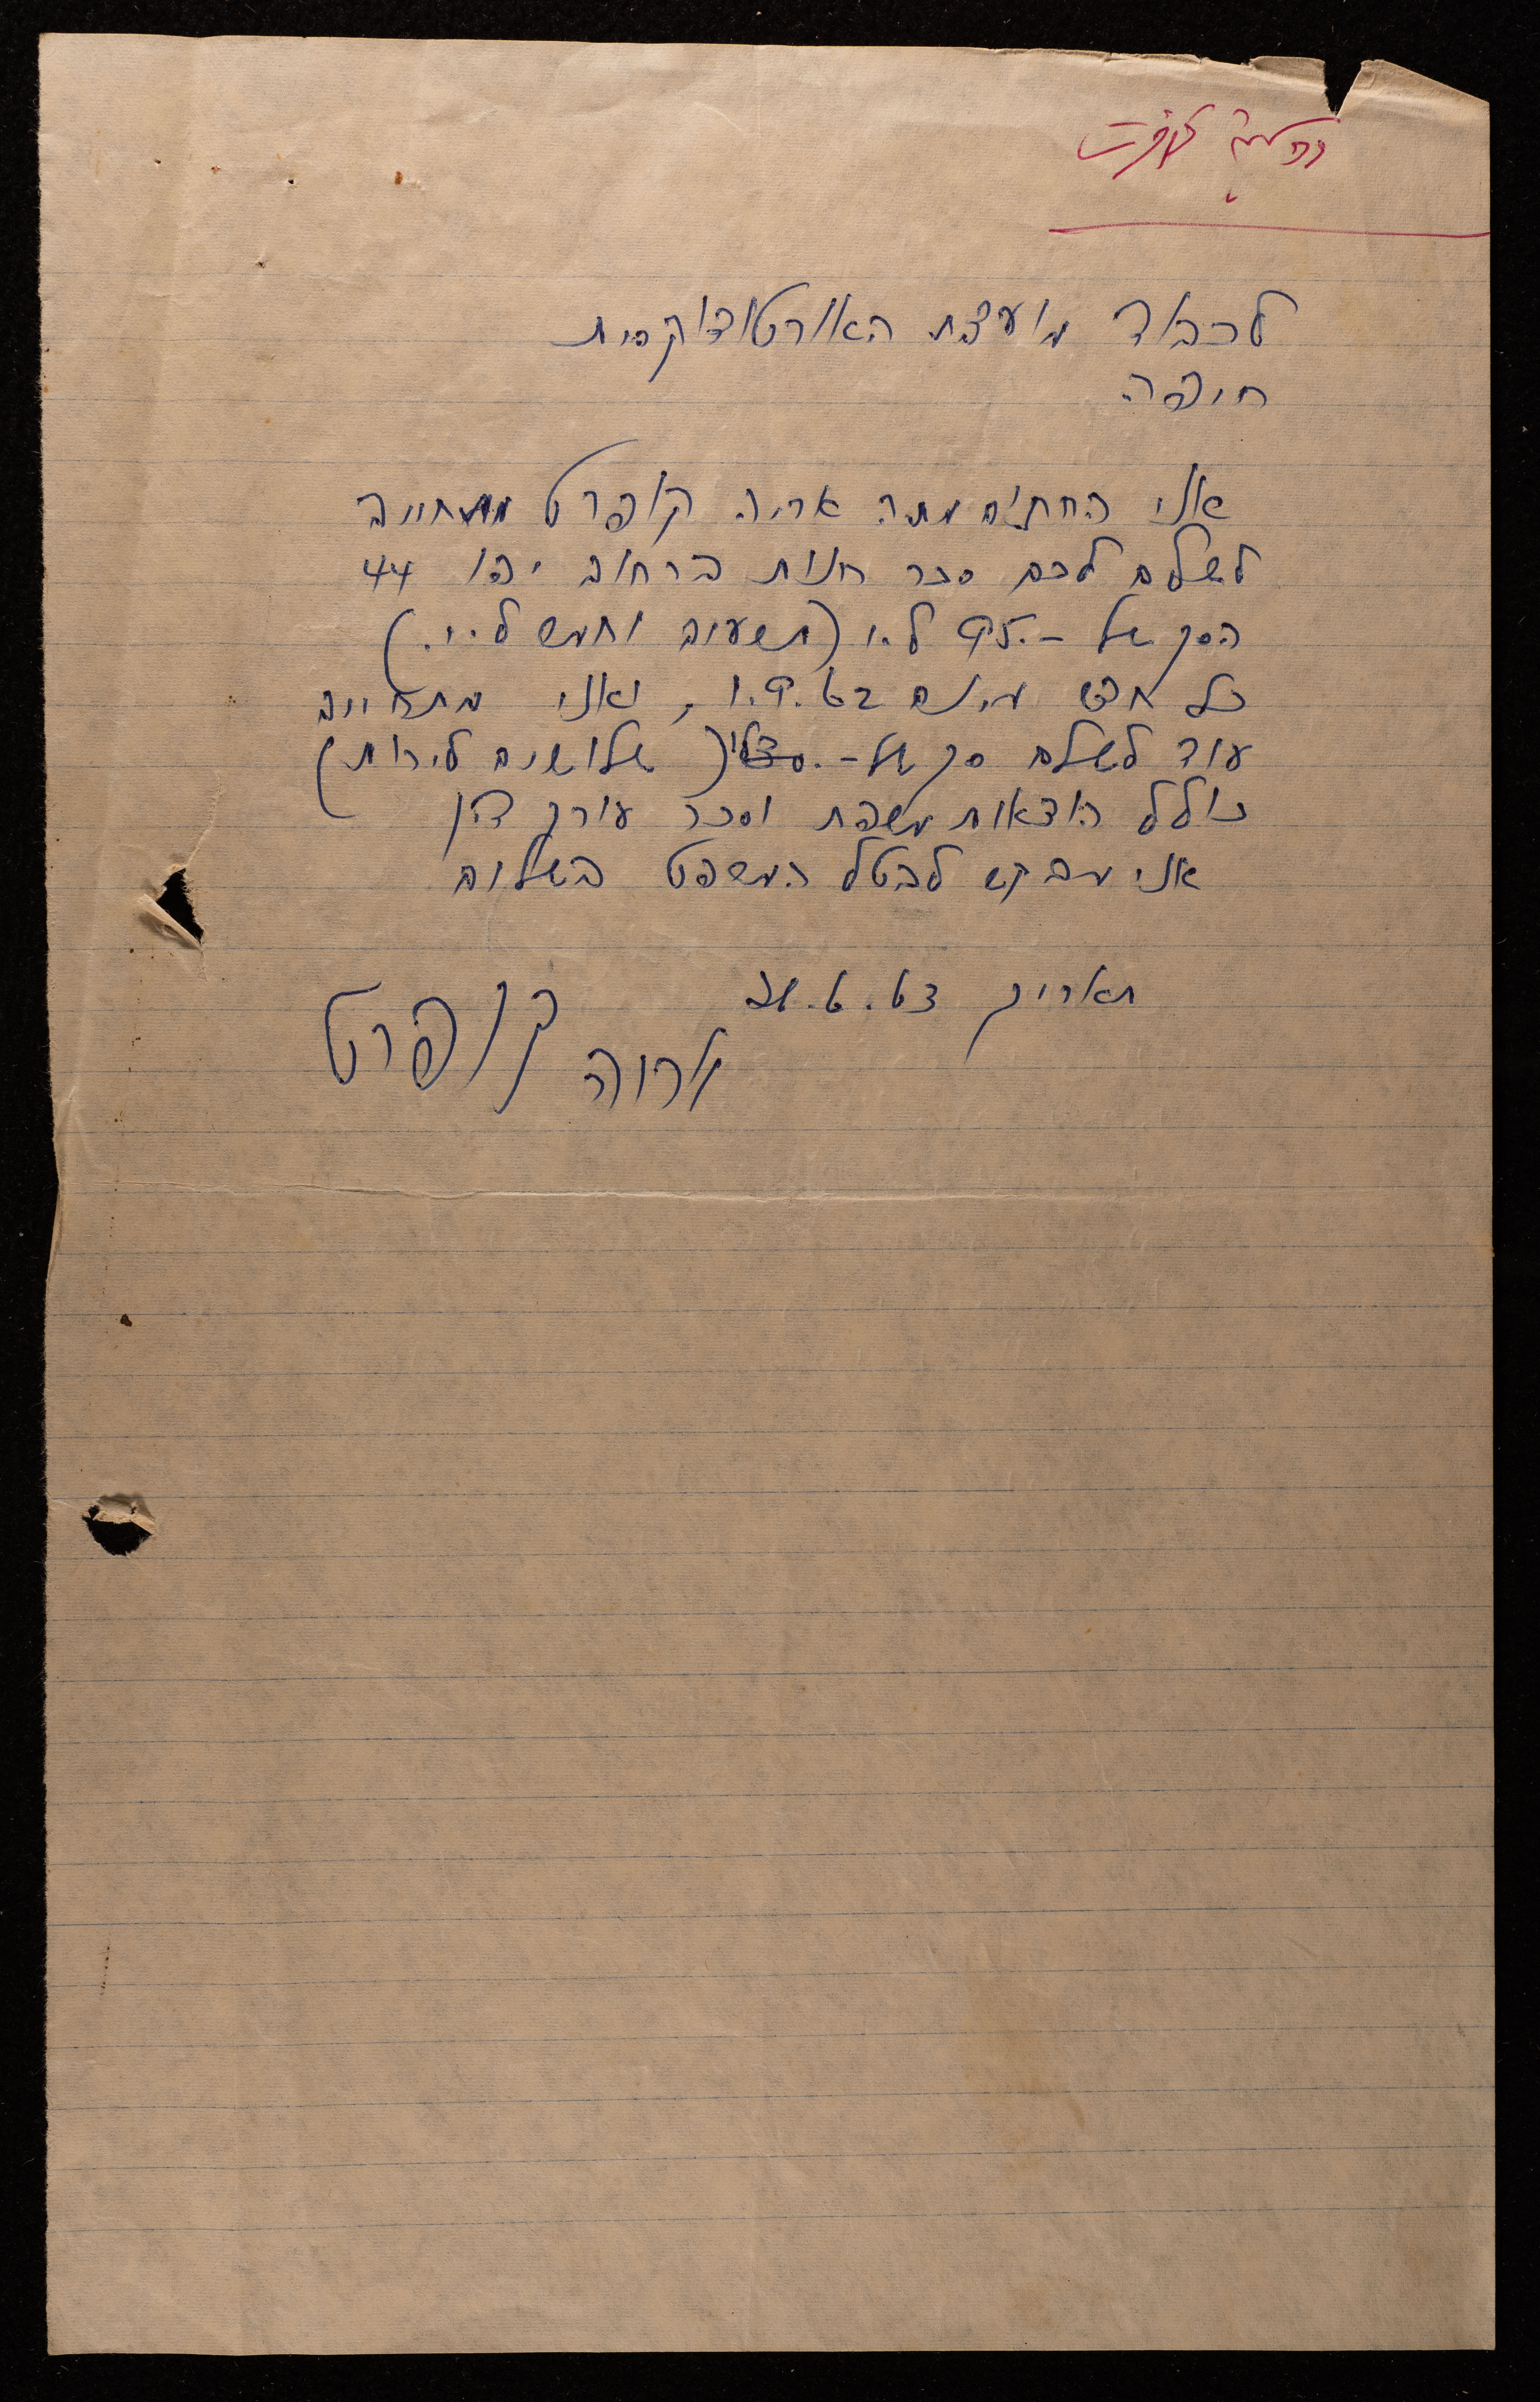 לכבוד מועצת האורטודוקסית
חיפה.
אני החת'ם מתה אריה קופרט מתחייב
לשלם לכם סכר חנות ברחוב יפו 44
הסך של -.95 ל.י (תשעים וחמש ל.י.)
כל חדש מיום 1.9.62, ואני מתחייב
עוד לשלם סך של -. (שלושים לירות)
כולל הוצאות משפת וסכר עורך דין
אני מבקש לבטל המשפט בשלום
תאריך
אריה קופרט